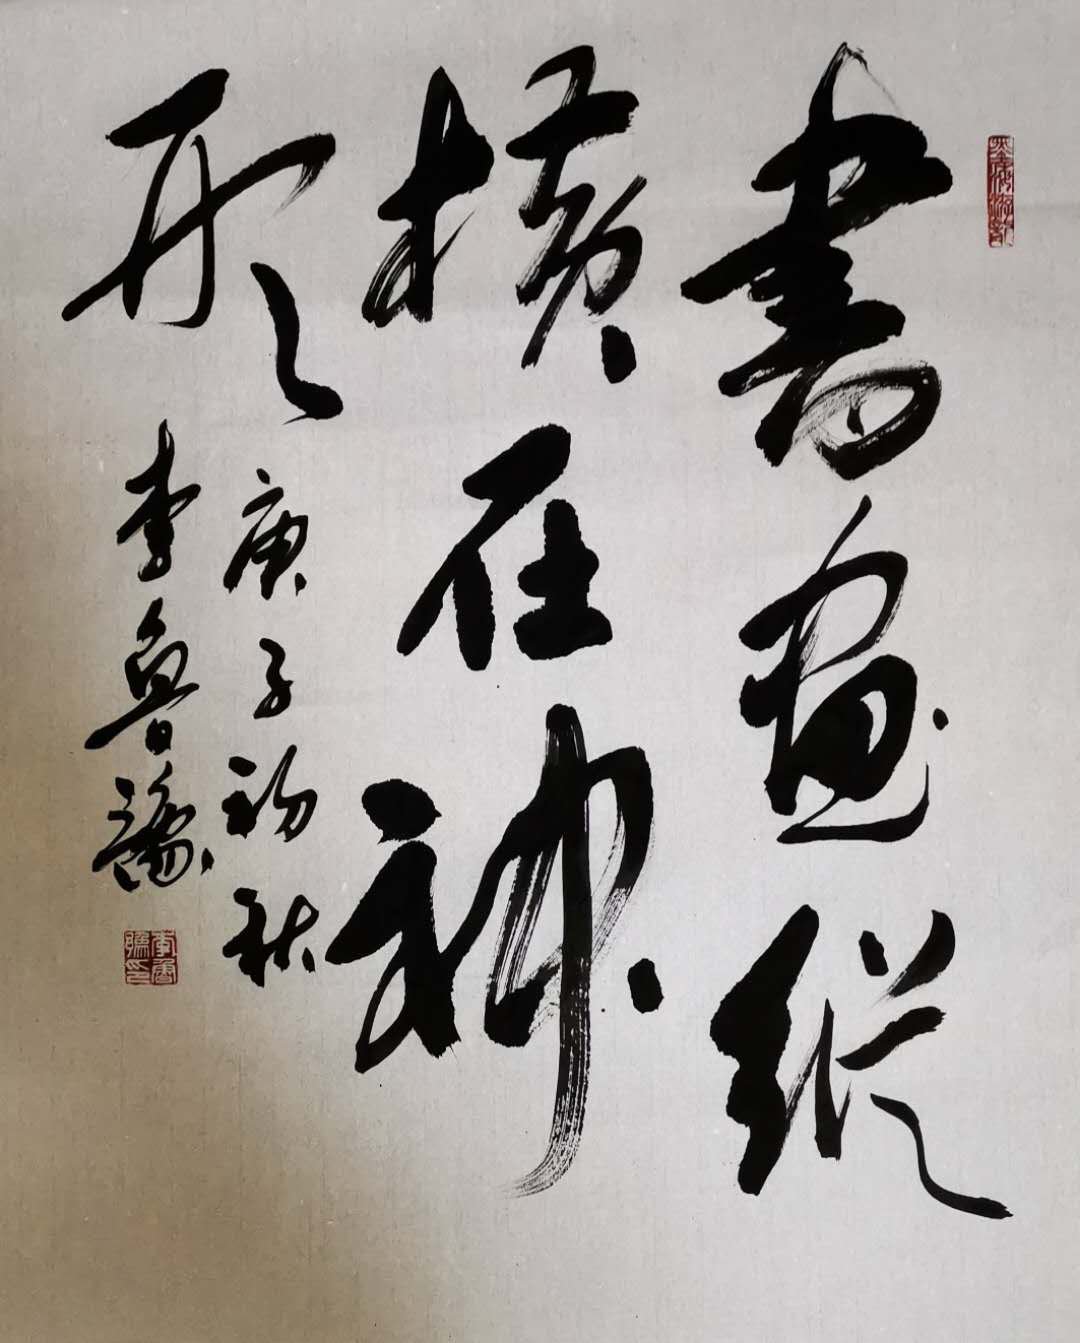 書畫縱
横在神
形
庚子初秋
李魯